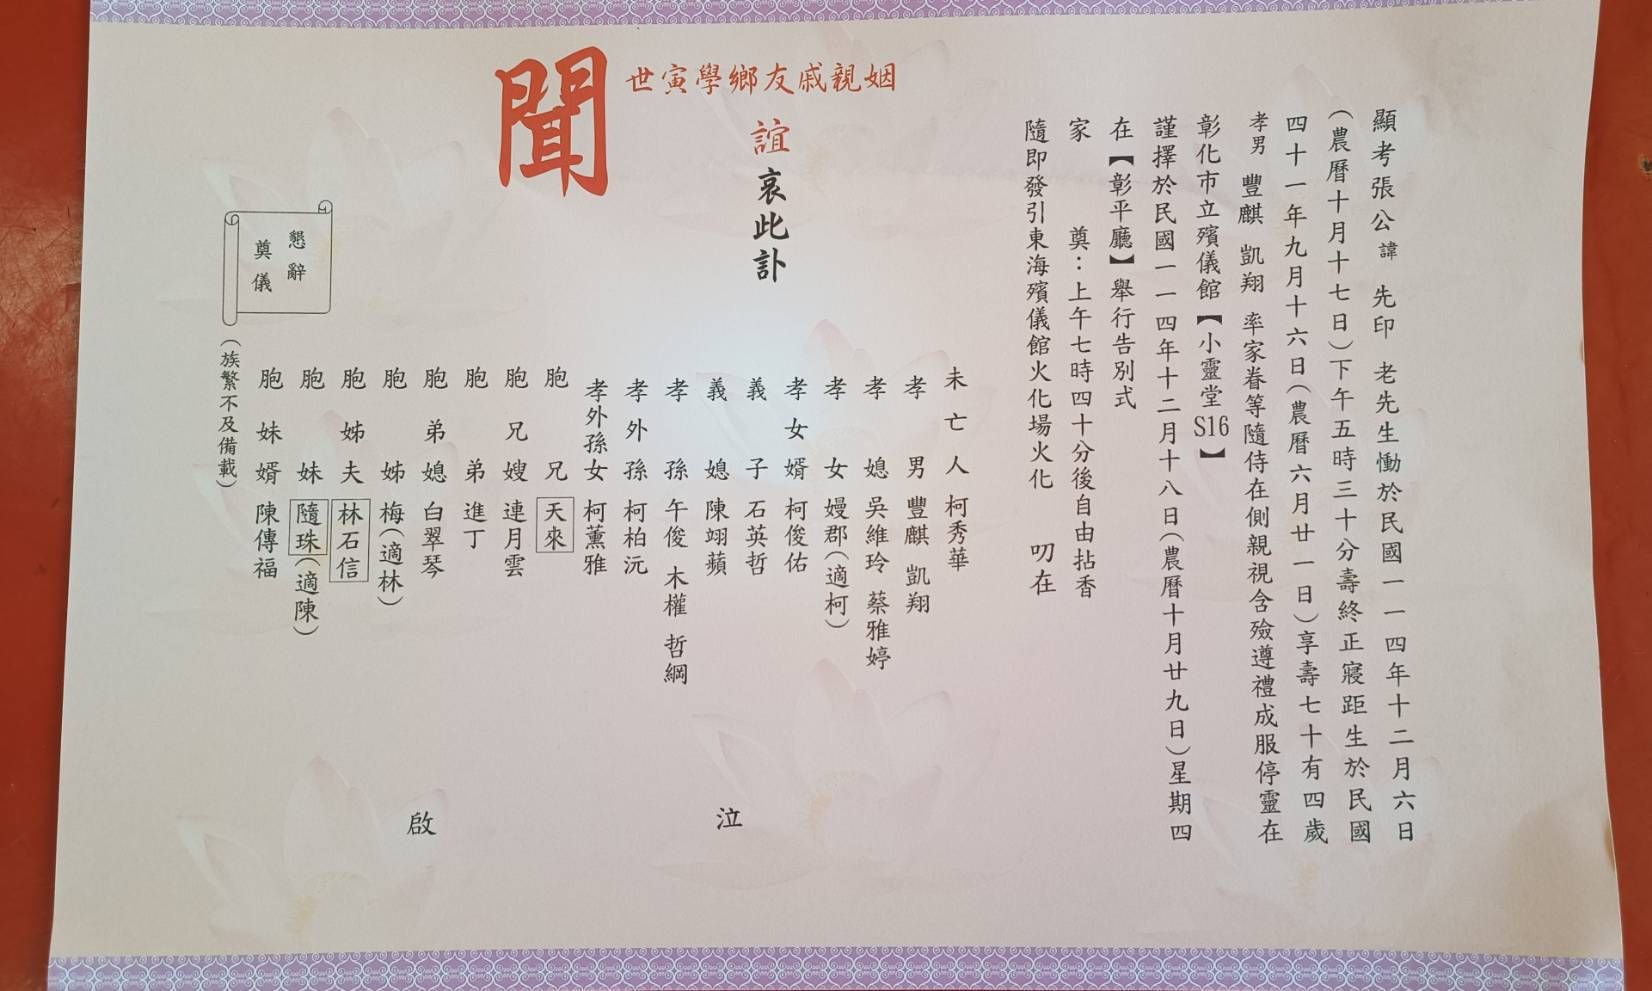 顯考張公諱 先印 老先生慟於民國一一四年十二月六日
（農曆十月十七日）下午五時三十分壽終正寢距生於民國
四十一年九月十六日（農曆六月廿一日）享壽七十有四歲
孝男 豐麒 凱翔 率家眷等隨侍在側親視含殮遵禮成服停靈在
彰化市立殯儀館【小靈堂S16】
謹擇於民國一一四年十二月十八日（農曆十月廿九日）星期四
在【彰平廳】舉行告別式
家 奠：上午七時四十分後自由拈香
隨即發引東海殯儀館火化場火化 叨在
姻親戚友鄉學寅世
誼哀此訃
聞
未亡人 柯秀華
孝男 豐麒 凱翔
孝媳 吳維玲 蔡雅婷
孝女 嫚郡（適柯）
孝女婿 柯俊佑
義子 石英哲
義媳 陳翊蘋
孝孫 午俊 木權 哲綱
孝外孫 柯柏沅
孝外孫女 柯薰雅
胞兄 天來
胞兄嫂 連月雲
胞弟 進丁
胞弟媳 白翠琴
胞姊 梅（適林）
胞姊夫 林石信
胞妹 隨珠（適陳）
胞妹婿 陳傳福
（族繁不及備載）
泣
啟
懇辭
奠儀